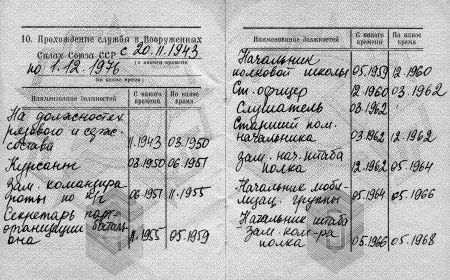 10. Прохождение службы в Вооруженных
Силах Союза ССР с 20.11.1943
(с какого времени
по 1.12.1976
по какое время)
Наименование должностей
С какого времени
По какое время
На должностях
рядового и серж.
состава 11.1943 03.1950
Курсант 03.1950 06.1951
Зам. командира
роты по п/ч 06.1951 11.1955
Секретарь парт-
организации баталь-
она 11.1955 05.1959
Наименование должностей
С какого времени
По какое время
Начальник
полковой школы 05.1959 12.1960
Ст. офицер 12.1960 03.1962
Слушатель 03.1962
Старший пом.
начальника 03.1962 12.1962
Зам. нач. штаба
полка 12.1962 05.1964
Начальник моби-
лизац. группы 05.1964 05.1966
Начальник штаба
зам. ком-ра
полка 05.1966 05.1968